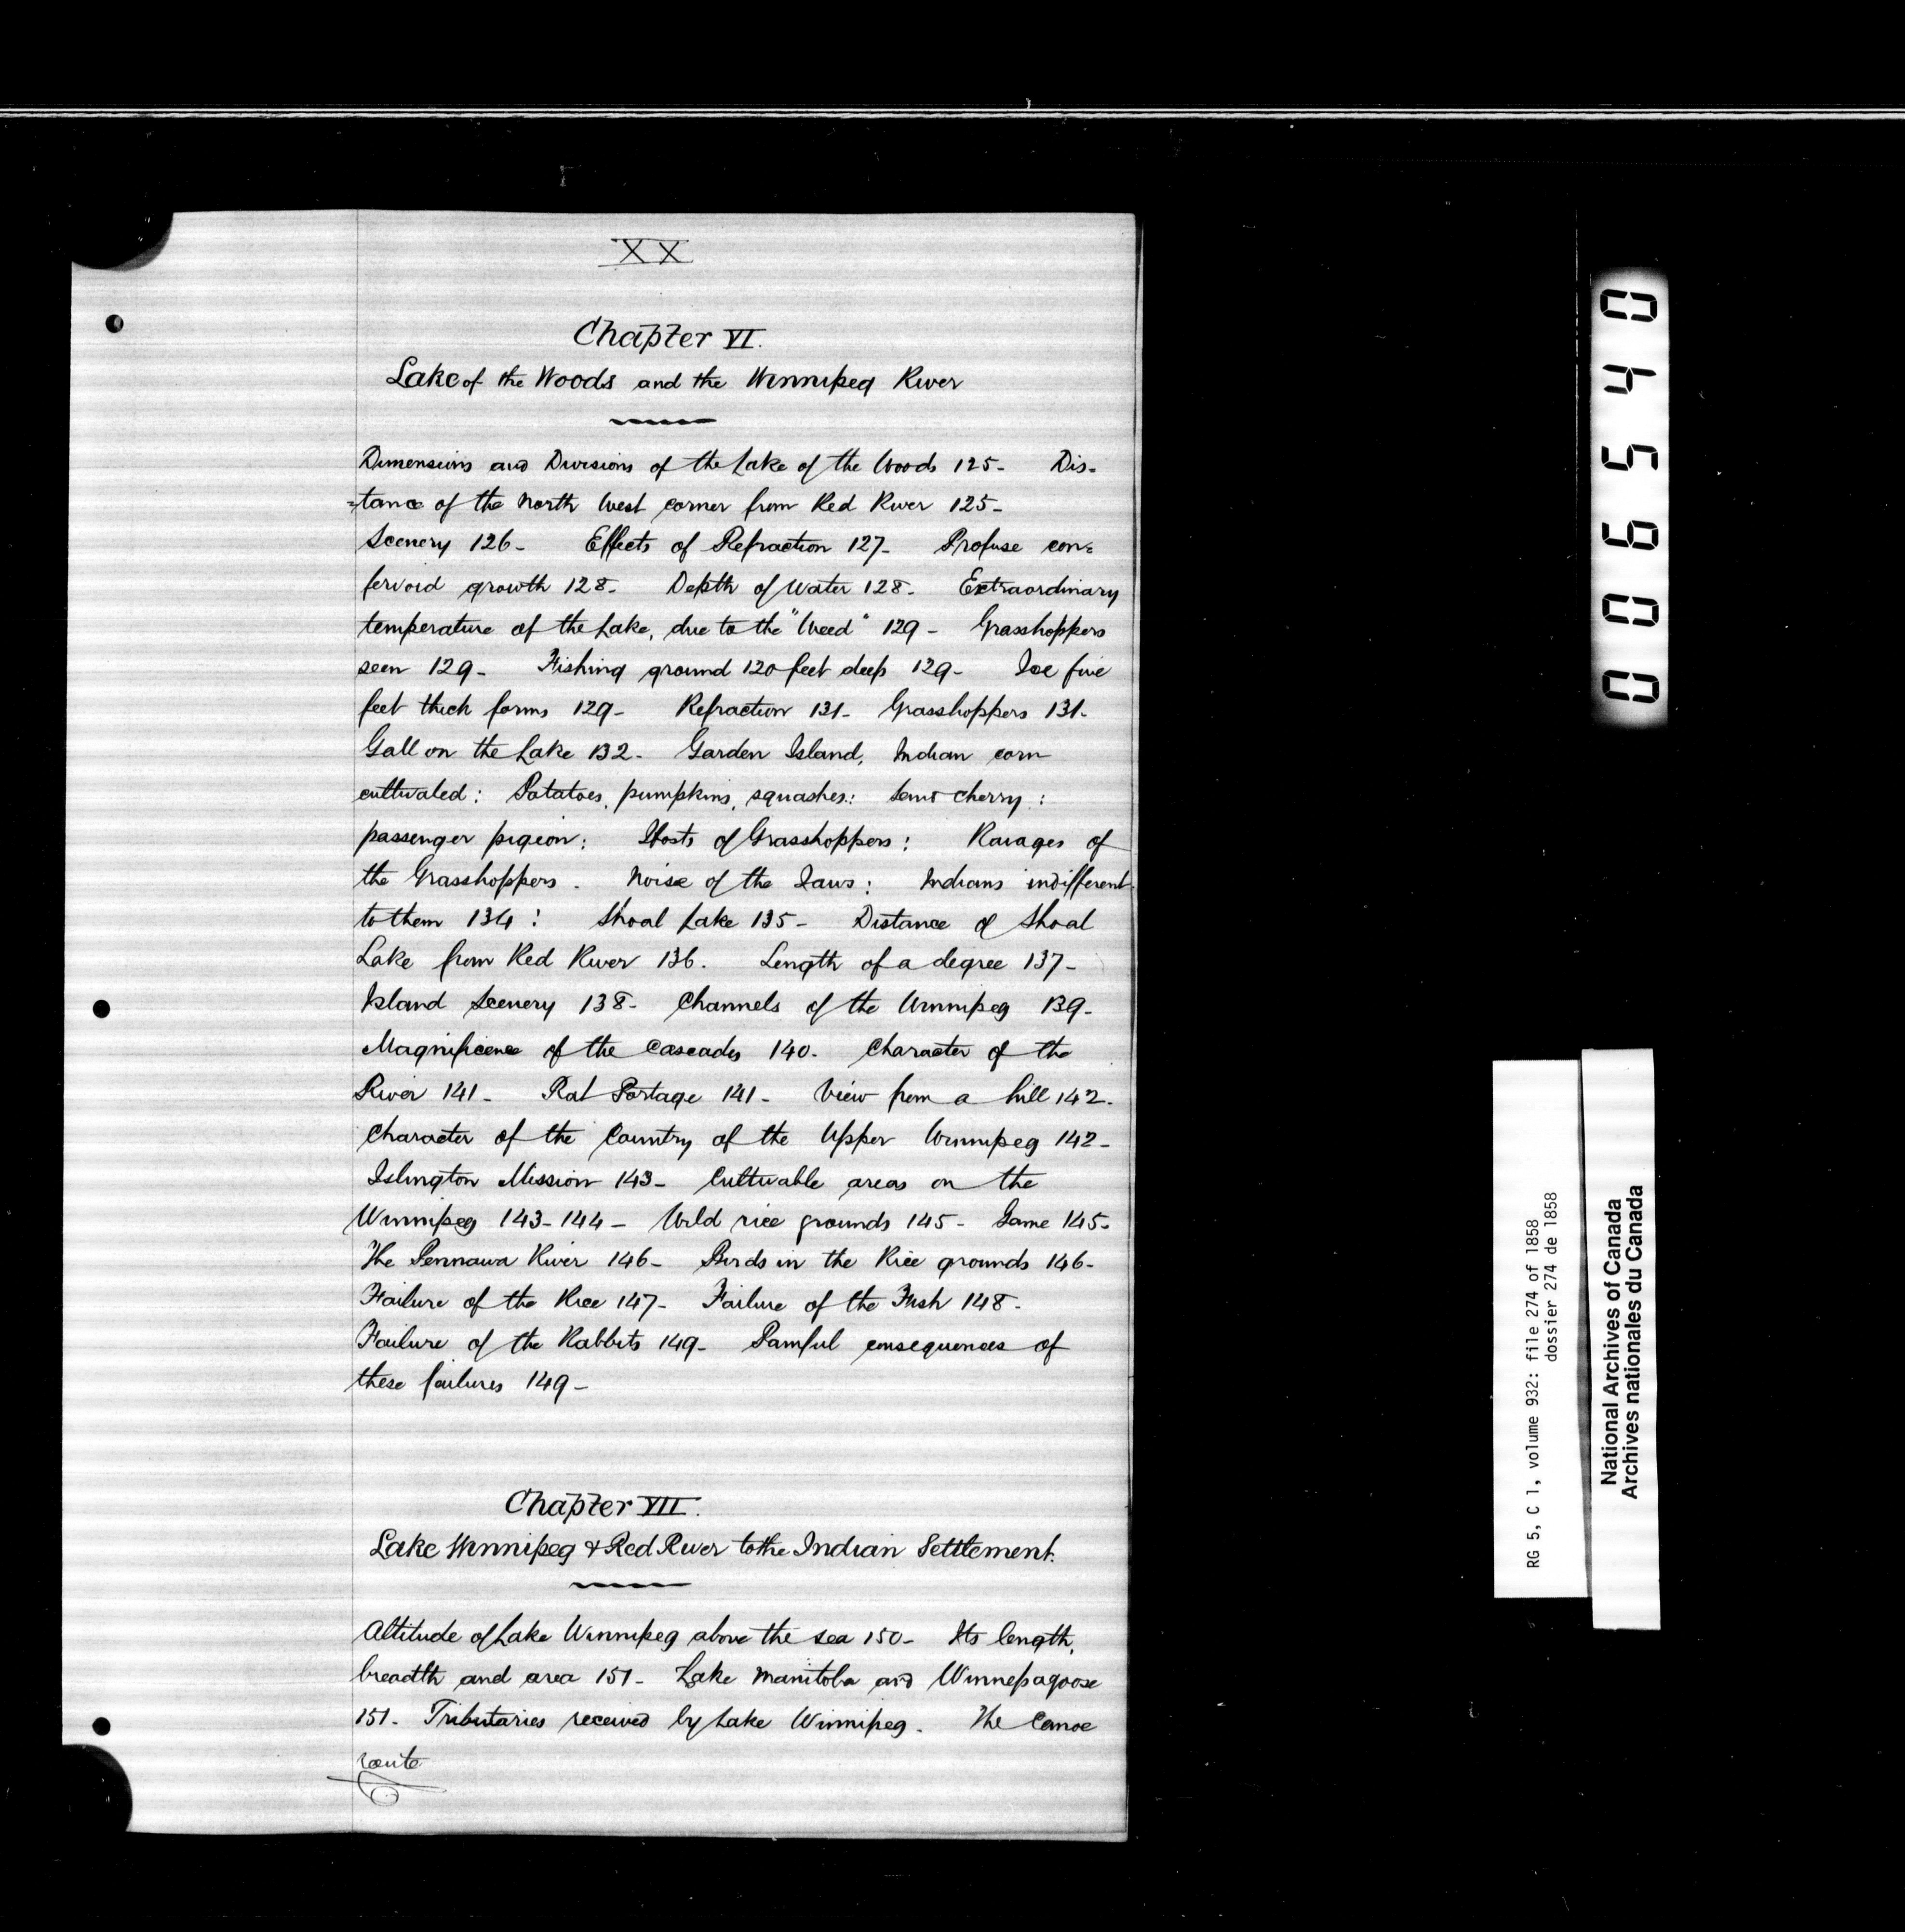 XX
Chapter VI.
Lake of the Woods and the Winnipeg River
Dimensions and Divisions of the Lake of the Woods 125- Dis-
=tance of the North West corner from Red River 125-
Scenery 126- Effects of Refraction 127- Profuse con=
fervoid growth 128- Depth of Water 128- Extraordinary
temperature of the Lake, due to the "Weed" 129- Grasshoppers
seen 129- Fishing ground 120 feet deep 129- Ice five
feet thick forms 129- Refraction 131- Grasshoppers 131-
Gall on the Lake 132- Garden Island, Indian corn
cultivated: Potatoes, pumpkins, squashes: Sand cherry:
passenger pigeon: Hosts of Grasshoppers: Ravages of
the Grasshoppers. Noise of the Jaws: Indians indifferent
to them 134: Shoal Lake 135- Distance of Shoal
Lake from Red River 136. Length of a degree 137-
Island Scenery 138- Channels of the Winnipeg 139-
Magnificence of the Cascades 140- Character of the
River 141- Rat Portage 141- View from a hill 142-
Character of the Country of the Upper Winnipeg 142-
Islington Mission 143- Cultivable areas on the
Winnipeg 143-144- Wild rice grounds 145- Game 145-
The Pennawa River 146- Birds in the Rice grounds 146-
Failure of the Rice 147- Failure of the Fish 148-
Failure of the Rabbits 149- Painful consequences of
these failures 149-
Chapter VII.
Lake Winnipeg & Red River to the Indian Settlement.
Altitude of Lake Winnipeg above the sea 150- Its length,
breadth and area 151- Lake Manitoba and Winnepagoose
151- Tributaries received by Lake Winnipeg. The Canoe
route
006540
RG 5, C 1, volume 932: file 274 of 1858
dossier 274 de 1858
National Archives of Canada
Archives nationales du Canada